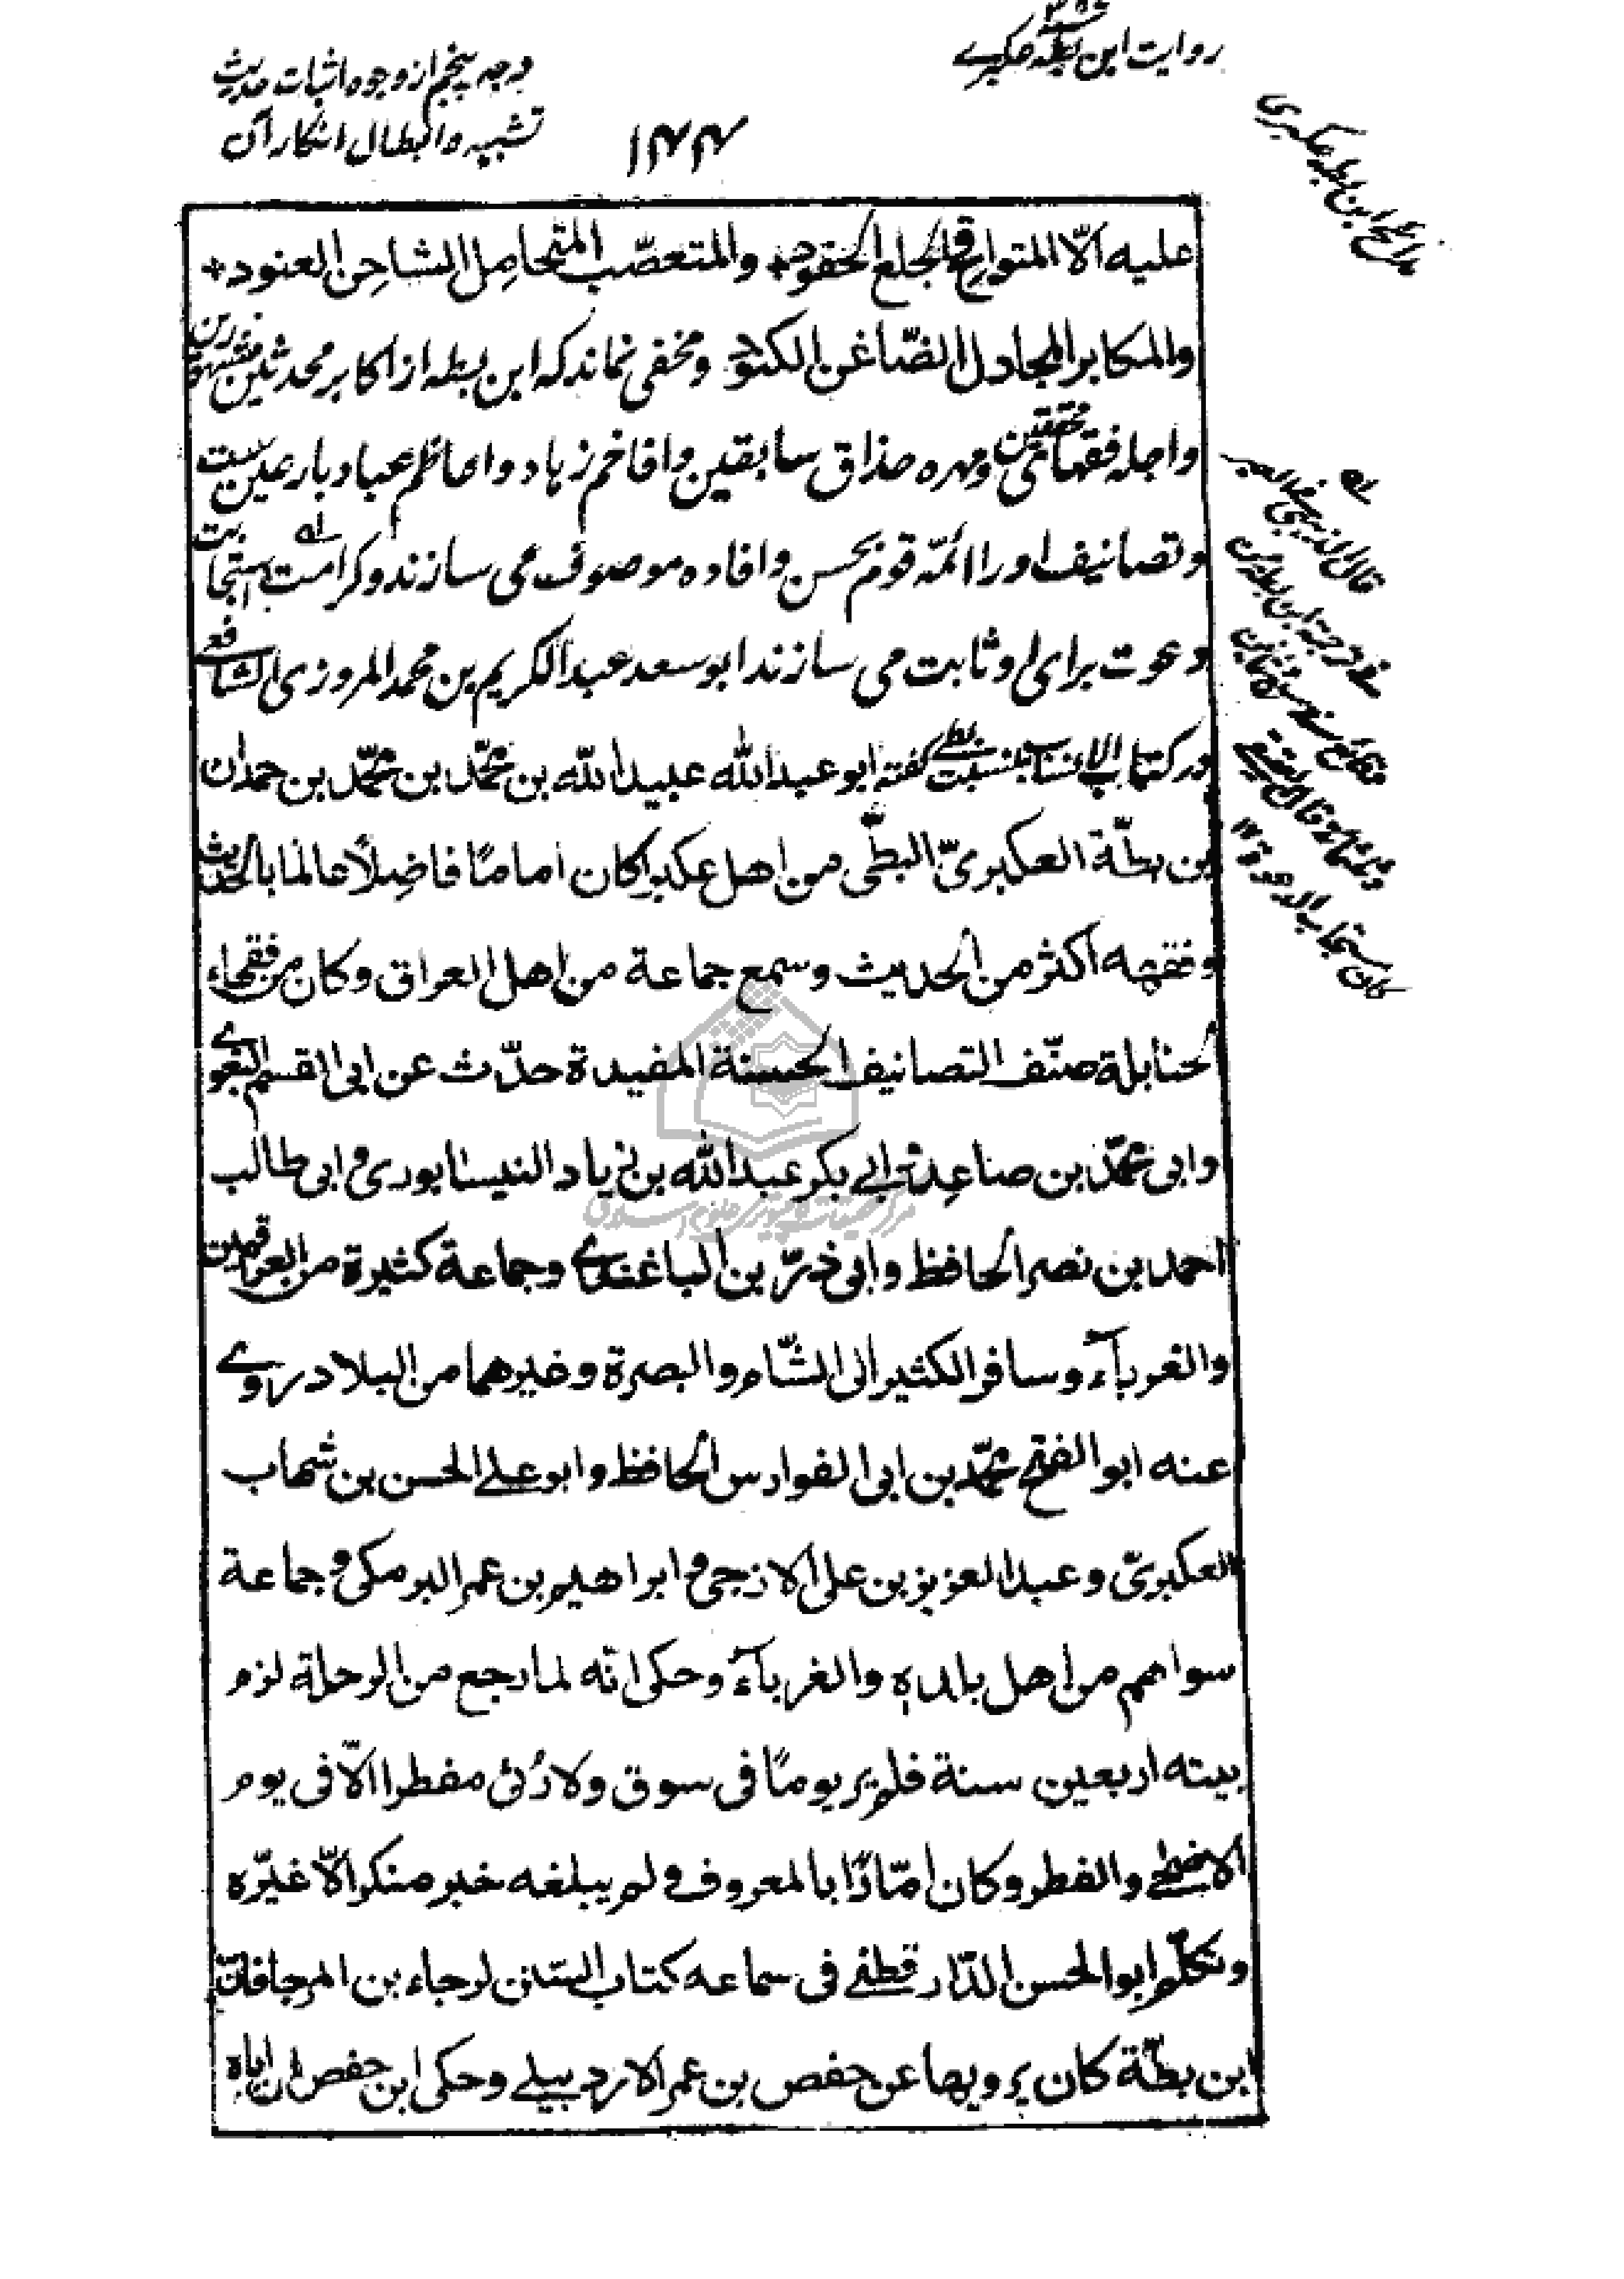 روایت ابن بطه عکبری
وجه پنجم از وجوه اثبات حدیث
تشبیه و ابطال انکار آن
۱۴۴
مدائح ابن بطه عکبری
علیه الّا المتواقح الجلع الحقود+ والمتعصّب المتحامل الشاحن العنود+
والمکابر المجادل الضّاغن الکنود و مخفی نماند که ابن بطه از اکابر محدثین مشهورین
و اجله فقهای محققین و مهره حذاق سابقین و افاخم زهاد و اعاظم عباد بارعین ست
و تصانیف او را ائمّه قوم بحسن و افاده موصوف می سازند و کرامت استجابت
دعوت برای او ثابت می سازند ابو سعد عبد الکریم بن محمد المروزی الشافعی
در کتاب الانساب بنسبت بطی گفته ابو عبد الله عبید الله بن محمّد بن محمّد بن حمدان
بن بطّة العکبریّ البطّی من اهل عکبرا کان اماما فاضلًا عالما بالحدیث
وفقهه اکثر من الحدیث وسمع جماعة من اهل العراق وکان من فقهاء
الحنابلة صنّف التصانیف الحسنة المفیدة حدّث عن ابی القسم البغوی
وابی محمّد بن صاعد وابی بکر عبد الله بن زیاد النیسابوری وابی طالب
احمد بن نصر الحافظ وابی ذرّ بن الباغندی وجماعة کثیرة من العراقیین
والغربآء وسافر الکثیر الی الشّام والبصرة وغیرهما من البلاد روی
عنه ابو الفتح محمّد بن ابی الفوارس الحافظ وابو علی الحسن بن شهاب
العکبریّ وعبد العزیز بن علی الازجی وابراهیم بن عمر البرمکی وجماعة
سواهم من اهل بلده والغربآء وحکی انّه لما رجع من الرحلة لزم
بیته اربعین سنة فلم یر یومًا فی سوق ولا رُئی مفطرا الّا فی یوم
الاضحی والفطر وکان امّارًا بالمعروف ولم یبلغه خبر منکر الّا غیّره
وتکلّم ابو الحسن الدّارقطنی فی سماعه کتاب السّنن لرجاء بن المرجا فانّ
ابن بطّة کان یرویها عن حفص بن عمر الاردبیلی وحکی ابن حفص ان اباه
قال الذهبی فی العبر
فی ترجمة ابن بطه من
وقائع سنة سبع وثمانین
وثلثمائة قال العتیقی
کان مستجاب الدعوة ۱۲
مرکز تحقیقات کامپیوتری علوم اسلامی